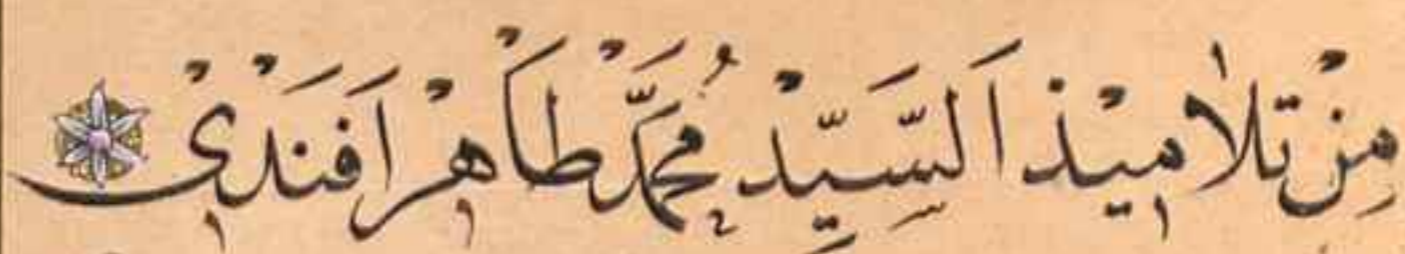 مِنْ تَلَامِيْذِ اَلسَّيِّدْ مُحَمَّدْ طَاهِرْ اَفَنْدِيْ